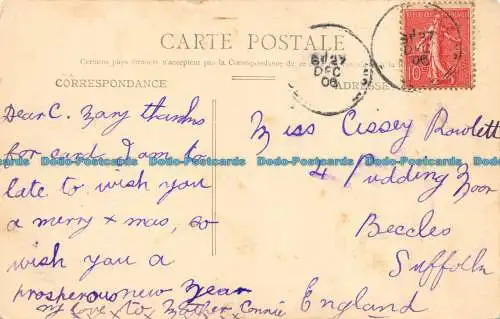 CARTE POSTALE
CORRESPONDANCE
ADRESSE
Dear C. Many thanks
for card I am to
late to wish you
a merry xmas, so
wish you a
prosperous new Year
my love to Mother Connie
Miss Cissey Rowlett
4 Pudding Moor
Beccles
Suffolk
England
27
DEC
06
27
DEC
06
10
Dodo-Postcards Dodo-Postcards Dodo-Postcards Dodo-Postcards